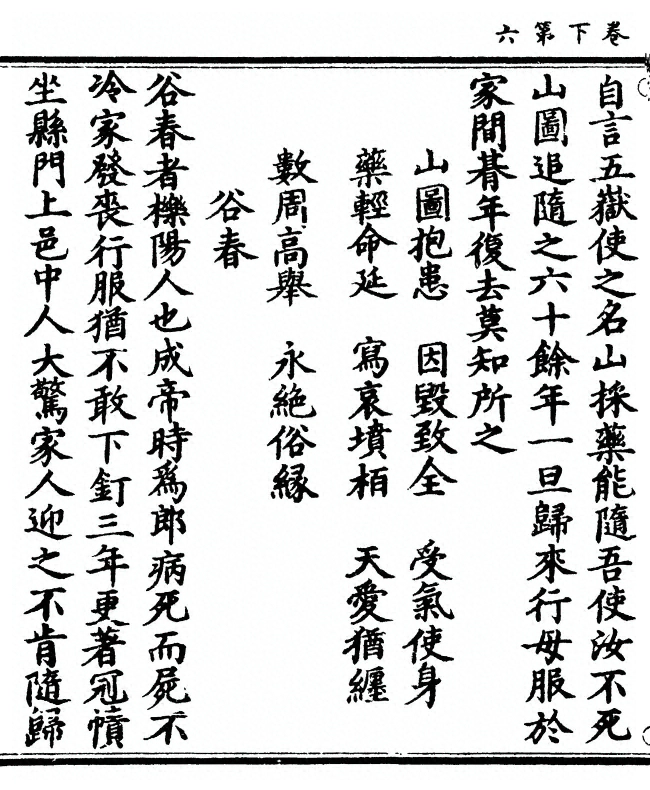 卷下第六
自言五嶽使之名山採藥能隨吾使汝不死
山圖追隨之六十餘年一旦歸來行母服於
家間朞年復去莫知所之
山圖抱患　因毀致全　受氣使身
藥輕命延　寫哀墳栢　天愛猶纏
數周高舉　永絶俗緣
谷春
谷春者櫟陽人也成帝時爲郎病死而屍不
冷家發喪行服猶不敢下釘三年更著冠幘
坐縣門上邑中人大驚家人迎之不肯隨歸